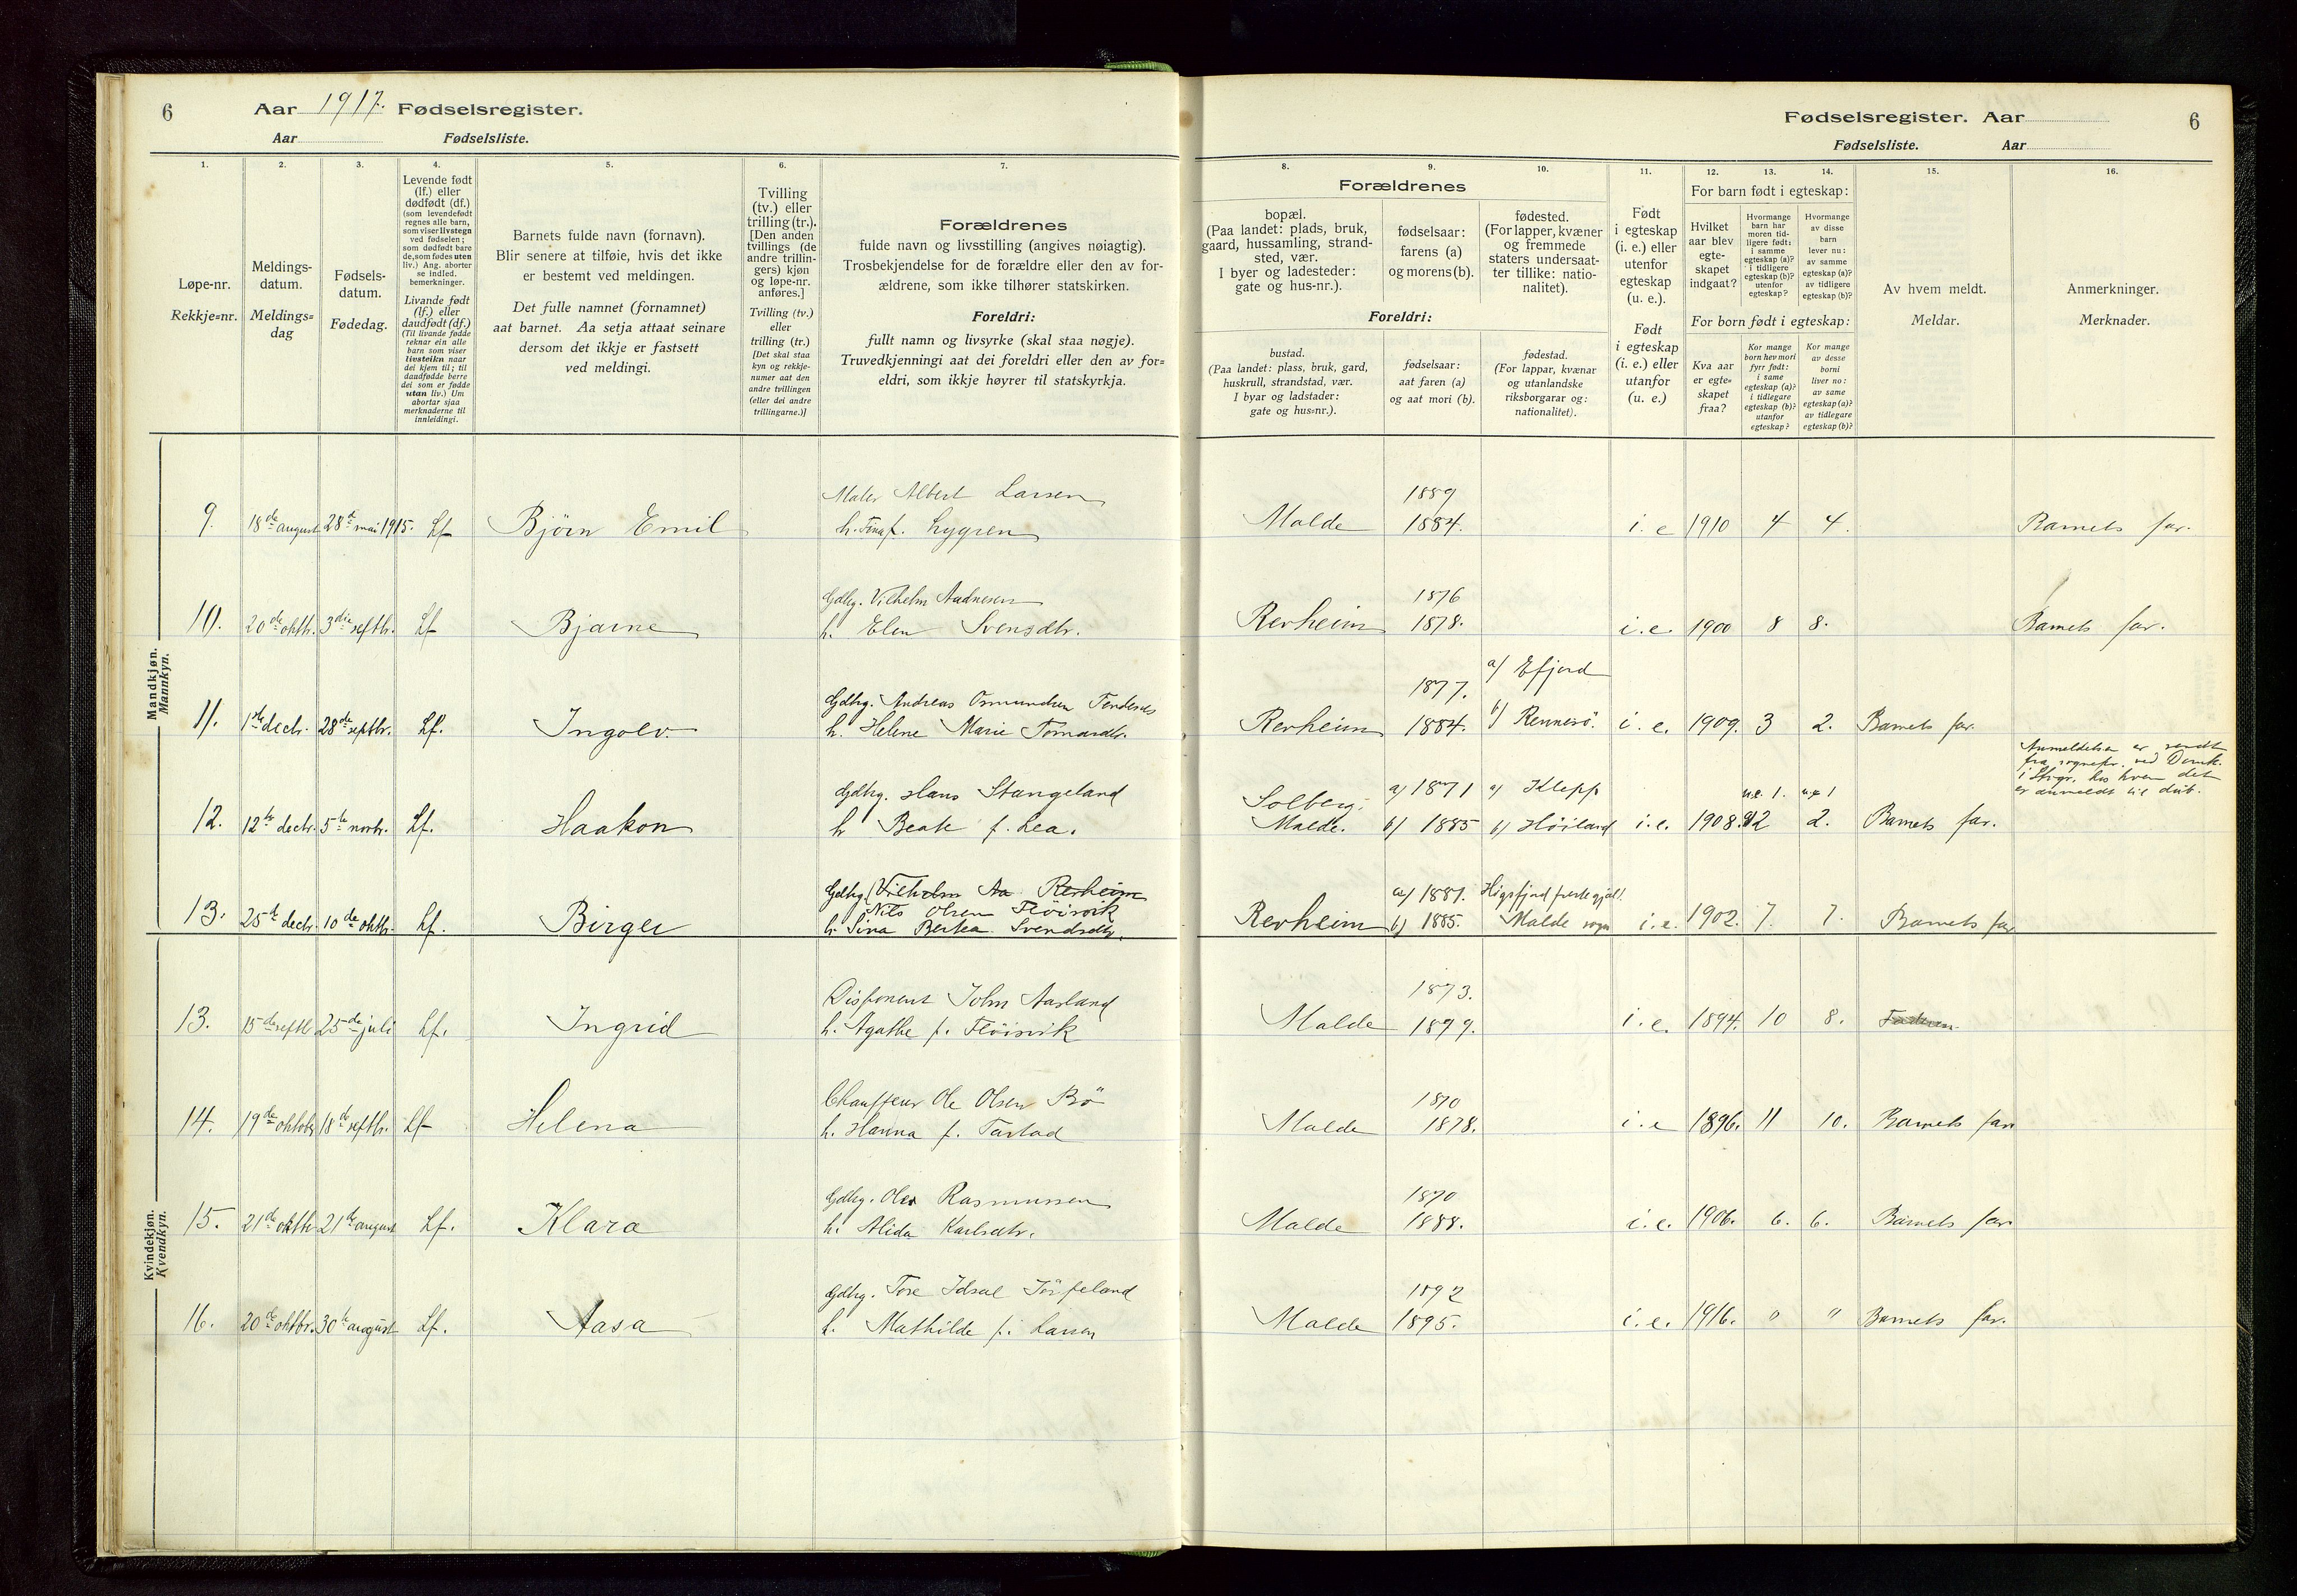 6 Aar 1917. Fødselsregister.
Aar Fødselsliste.
Fødselsregister. Aar 6
Fødselsliste. Aar
1. 2. 3. 4. 5. 6. 7. 8. 9. 10. 11. 12. 13. 14. 15. 16.
Løpe-nr.
Rekkje=nr.
Meldings-
datum.
Meldings=
dag
Fødsels-
datum.
Fødedag.
Levende født
(lf.) eller
dødfødt (df.)
(som levendefødt
regnes alle barn,
som viser livstegn
ved fødselen;
som dødfødt bare
de, som fødes uten
liv.) Ang. aborter
se indled.
bemerkninger.
Livande født
(lf.) eller
daudfødt (df.)
(Til livande fødde
reknar ein alle
barn som viser
livsteikn naar
dei kjem til; til
daudfødde berre
dei som er fødde
utan liv.) Um
abortar sjaa
merknaderne til
innleidingi.
Barnets fulde navn (fornavn).
Blir senere at tilføie, hvis det ikke
er bestemt ved meldingen.
Det fulle namnet (fornamnet)
aat barnet. Aa setja attaat seinare
dersom det ikkje er fastsett
ved meldingi.
Tvilling
(tv.) eller
trilling (tr.).
[Den anden
tvillings (de
andre trillin-
gers) kjøn
og løpe-nr.
anføres.]
Tvilling (tv.)
eller
trilling (tr.)
[Det skal staa
kyn og rekkje-
numer aat den
andre tvillingen
(eller dei andre
trillingarne.)]
Forældrenes
fulde navn og livsstilling (angives nøiagtig).
Trosbekjendelse for de forældre eller den av for-
ældrene, som ikke tilhører statskirken.
Foreldri:
fullt namn og livsyrke (skal staa nøgje).
Truvedkjenningi aat dei foreldri eller den av for=
eldri, som ikkje høyrer til statskyrkja.
Forældrenes
bopæl.
(Paa landet: plads, bruk,
gaard, hussamling, strand-
sted, vær.
I byer og ladesteder:
gate og hus-nr.).
fødselsaar:
farens (a)
og morens (b).
fødested.
(For lapper, kvæner
og fremmede
staters undersaat-
ter tillike: natio-
nalitet).
Foreldri:
bustad.
(Paa landet: plass, bruk, gard,
huskrull, strandstad, vær.
I byar og ladstader:
gate og hus=nr.).
fødselsaar:
aat faren (a)
og aat mori (b).
fødestad.
(For lappar, kvænar
og utanlandske
riksborgarar og:
nationalitet).
Født
i egteskap
(i. e.) eller
utenfor
egteskap
(u. e.).
Født
i egteskap
(i. e.) eller
utanfor
(u. e.)
For barn født i egteskap:
Hvilket
aar blev
egte-
skapet
indgaat?
Hvormange
barn har
moren tid-
ligere født:
i samme
egteskap (a)?
i tidligere
egteskap (b)?
utenfor
egteskap?
Hvormange
av disse
barn
lever nu:
av samme
egteskap (a)?
av tidligere
egteskap (b)?
For born født i egteskap:
Kva aar
er egte=
skapet
fraa?
Kor mange
born hev mori
fyrr født:
i same
egteskap (a)?
i tidlegare
egteskap (b)?
utanfor
egteskap?
Kor mange
av desse
borni
liver no:
av same
egteskap (a)?
av tidlegare
egteskap (b)?
Av hvem meldt.
Meldar.
Anmerkninger.
Merknader.
Mandkjøn.
Mannkyn.
Maler Albert Larsen 1889
9. 18de august 28de mai 1915. Lf Björn Emil h. Tina f. Lygren Malde 1884. i. e 1910 4 4. Barnets far.
Gdbg. Vilhelm Aadnesen 1876
10. 20de oktbr. 3die septbr. Lf Bjarne h. Elen Svensdtr. Revheim 1878. i. e. 1900 8 8. Barnets far.
Gdbg. Andreas Osmundsen 1877. a) Efjord
11. 1ste decbr. 28de septbr. Lf. Ingolv. h. Helene Marie Revheim 1884. b) Rennesö. i. e. 1909. 3 2. Barnets far.
Anmeldelsen er sendt
fra sognepr. ved Domk.
i Stvgr. hos hvem det
er anmeldt til daab.
Gdbg. Hans Stangeland Solberg, a) 1871 a) Klepp u.e. 1. u.e 1
12. 12te decbr. 5te novbr. Lf. Haakon h Beate f. Lea. Malde. b) 1885 b) Höiland i. e. 1908. 2 2. Barnets far.
Gdbg. Vilhelm Aa Revheim a) 1881. Högsfjord prestegjæld.
Nils Olsen Flöisvik
13. 25de decbr. 10de oktbr. Lf. Birger h. Sina Berta Svendsdtr. Revheim b) 1885. Malde sogn i. e. 1902. 7. 7. Barnets far
Kvindekjøn.
Kvendkyn.
Disponent John Aasland 1873.
13. 15de septbr 25de juli Lf. Ingrid h. Agathe f. Flöisvik Malde 1877. i. e. 1894. 10 8.
Chauffeur Ole Olsen Bö 1870
14. 19de oktober 18de septbr. Lf Helena h. Hanna f. Tastad Malde 1878. i. e 1896. 11 10. Barnets far
Gdbg. Ole Rasmussen 1870
15. 21de oktbr 21de august Lf. Klara h. Alida Karlsdtr. Malde 1888. i. e. 1906. 6. 6. Barnets far
Gdbg. Tore Idsal Jörpeland 1892
16. 20de oktbr. 30te august Lf. Aasa h. Mathilde f. Larsen Malde 1895. i. e. 1916. " " Barnets far.